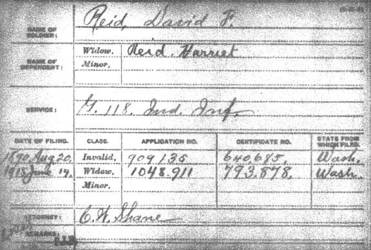 NAME OF SOLDIER: Reid, David F.
NAME OF DEPENDENT: Widow. Reid, Harriet
Minor.
SERVICE: G. 118, Ind. Inf.
DATE OF FILING. CLASS. APPLICATION NO. CERTIFICATE NO. STATE FROM WHICH FILED.
1890 Aug 20. Invalid, 909135 640,685. Wash.
1918 June 19. Widow, 1048.911 793,878. Wash.
Minor.
ATTORNEY: C. W. Shane
REMARKS: